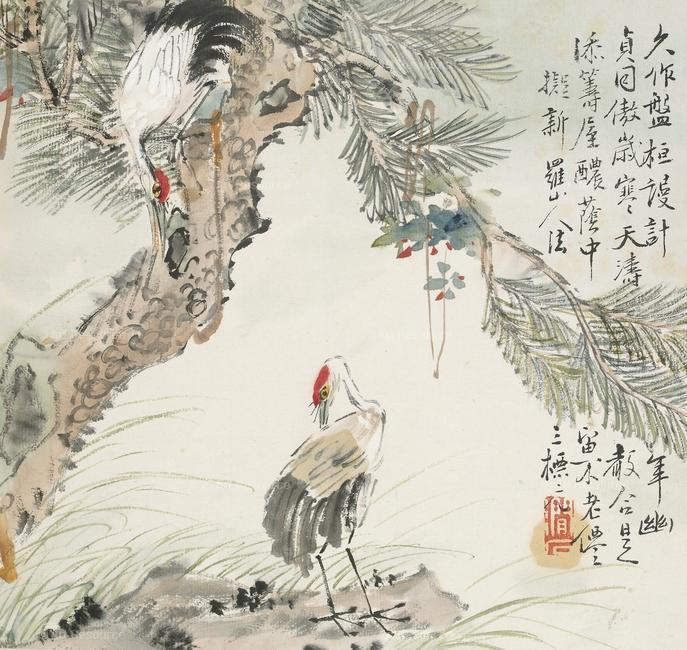 久作盤桓謾計年幽
貞同傲歲寒天濤散合是
添籌屋醲蔭中留不老僊
擬新羅山人法三標